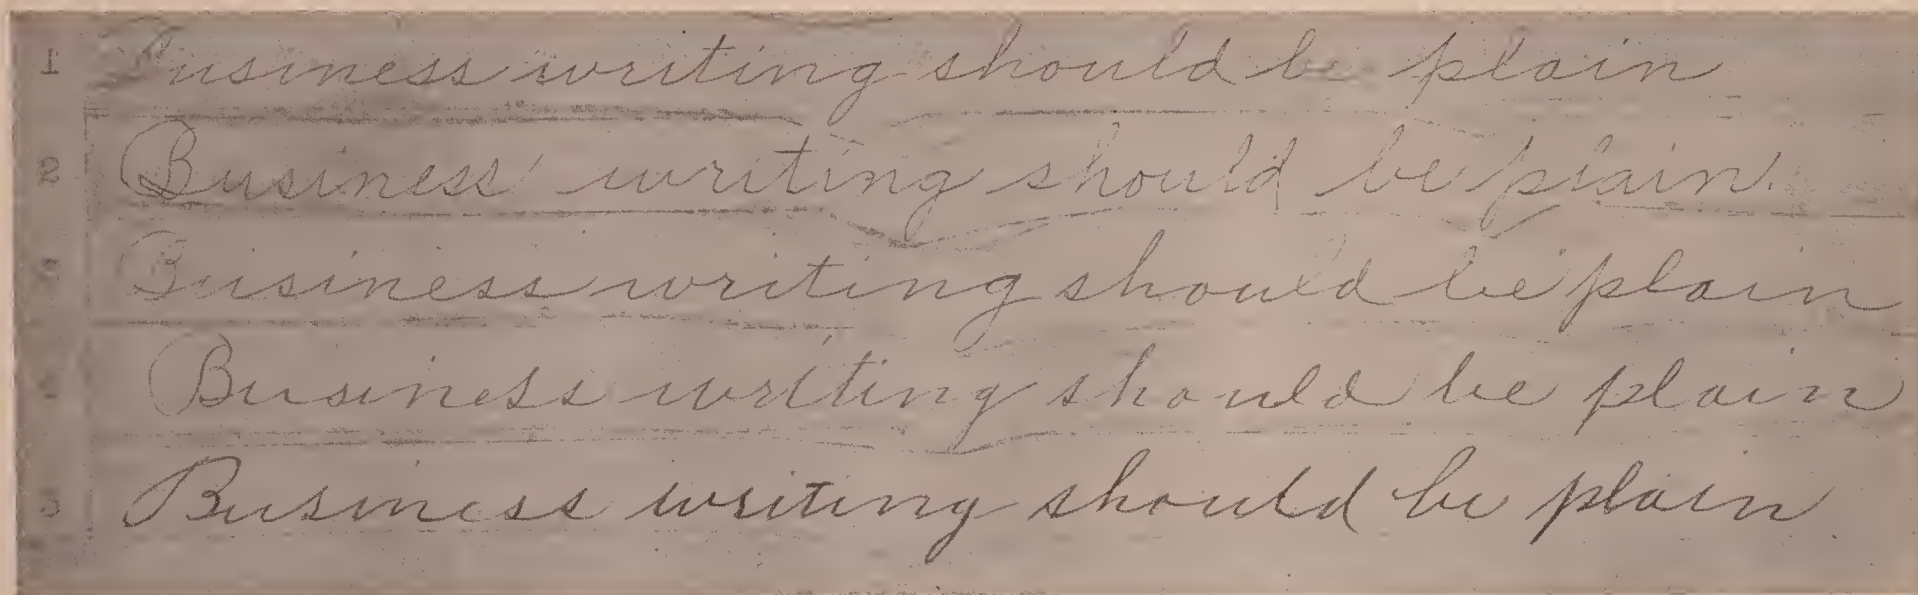 1 Business writing should be plain
2 Business writing should be plain.
3 Business writing should be plain
4 Business writing should be plain
5 Business writing should be plain